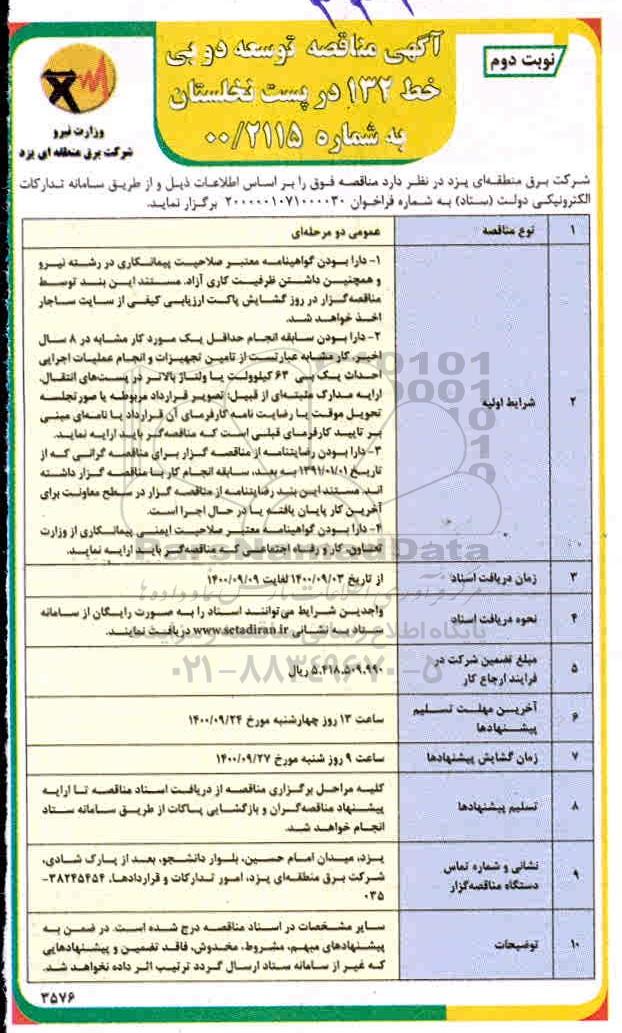 نوبت دوم
آگهی مناقصه توسعه دو بی
خط ۱۳۲ در پست نخلستان
به شماره ۰۰/۲۱۱۵
وزارت نیرو
شرکت برق منطقه ای یزد
شرکت برق منطقه‌ای یزد در نظر دارد مناقصه فوق را بر اساس اطلاعات ذیل و از طریق سامانه تدارکات
الکترونیکی دولت (ستاد) به شماره فراخوان ۲۰۰۰۰۰۱۰۷۱۰۰۰۰۳۰ برگزار نماید.
۱ نوع مناقصه عمومی دو مرحله‌ای
۲ شرایط اولیه
۱- دارا بودن گواهینامه معتبر صلاحیت پیمانکاری در رشته نیرو
و همچنین داشتن ظرفیت کاری آزاد. مستند این بند توسط
مناقصه‌گزار در روز گشایش پاکت ارزیابی کیفی از سایت ساجار
اخذ خواهد شد.
۲- دارا بودن سابقه انجام حداقل یک مورد کار مشابه در ۸ سال
اخیر. کار مشابه عبارتست از تامین تجهیزات و انجام عملیات اجرایی
احداث یک بی ۶۳ کیلوولت یا ولتاژ بالاتر در پست‌های انتقال.
ارایه مدارک مثبته‌ای از قبیل: تصویر قرارداد مربوطه یا صورتجلسه
تحویل موقت یا رضایت نامه کارفرمای آن قرارداد یا نامه‌ای مبنی
بر تایید کارفرمای قبلی است که مناقصه‌گر باید ارایه نماید.
۳- دارا بودن رضایتنامه از مناقصه گزار برای مناقصه گرانی که از
تاریخ ۱۳۹۱/۰۱/۰۱ به بعد، سابقه انجام کار با مناقصه گزار داشته
اند. مستند این بند رضایتنامه از مناقصه گزار در سطح معاونت برای
آخرین کار پایان یافته یا در حال اجرا است.
۴- دارا بودن گواهینامه معتبر صلاحیت ایمنی پیمانکاری از وزارت
تعاون، کار و رفاه اجتماعی که مناقصه‌گر باید ارایه نماید.
۳ زمان دریافت اسناد از تاریخ ۱۴۰۰/۰۹/۰۳ لغایت ۱۴۰۰/۰۹/۰۹
۴ نحوه دریافت اسناد
واجدین شرایط می‌توانند اسناد را به صورت رایگان از سامانه
ستاد به نشانی www.setadiran.ir دریافت نمایند.
۵ مبلغ تضمین شرکت در
فرایند ارجاع کار
۵.۴۱۸.۵۰۹.۹۹۰ ریال
۶ آخرین مهلت تسلیم
پیشنهادها
ساعت ۱۳ روز چهارشنبه مورخ ۱۴۰۰/۰۹/۲۴
۷ زمان گشایش پیشنهادها ساعت ۹ روز شنبه مورخ ۱۴۰۰/۰۹/۲۷
۸ تسلیم پیشنهادها
کلیه مراحل برگزاری مناقصه از دریافت اسناد مناقصه تا ارایه
پیشنهاد مناقصه‌گران و بازگشایی پاکات از طریق سامانه ستاد
انجام خواهد شد.
۹ نشانی و شماره تماس
دستگاه مناقصه‌گزار
یزد، میدان امام حسین، بلوار دانشجو، بعد از پارک شادی،
شرکت برق منطقه‌ای یزد، امور تدارکات و قراردادها. ۳۸۲۴۵۴۵۴-
۰۳۵
۱۰ توضیحات
سایر مشخصات در اسناد مناقصه درج شده است. در ضمن به
پیشنهادهای مبهم، مشروط، مخدوش، فاقد تضمین و پیشنهادهایی
که غیر از سامانه ستاد ارسال گردد ترتیب اثر داده نخواهد شد.
۳۵۷۶
ParsNamadData
پایگاه اطلاع رسانی مناقصه و مزایده
۰۲۱-۸۸۳۴۹۶۷۰-۵